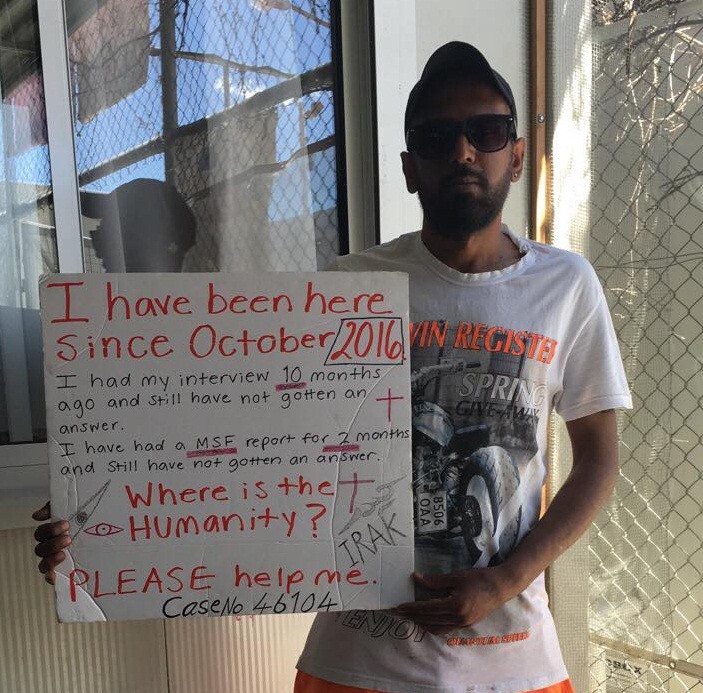 I have been here
since October 2016.
I had my interview 10 months
ago and still have not gotten an
answer.
I have had a MSF report for 2 months
and still have not gotten an answer.
Where is the
Humanity?
IRAK
PLEASE help me.
Case No 46104
WIN REGISTER
SPRING
GIVE-AWAY
8506
OAA
ENJOY